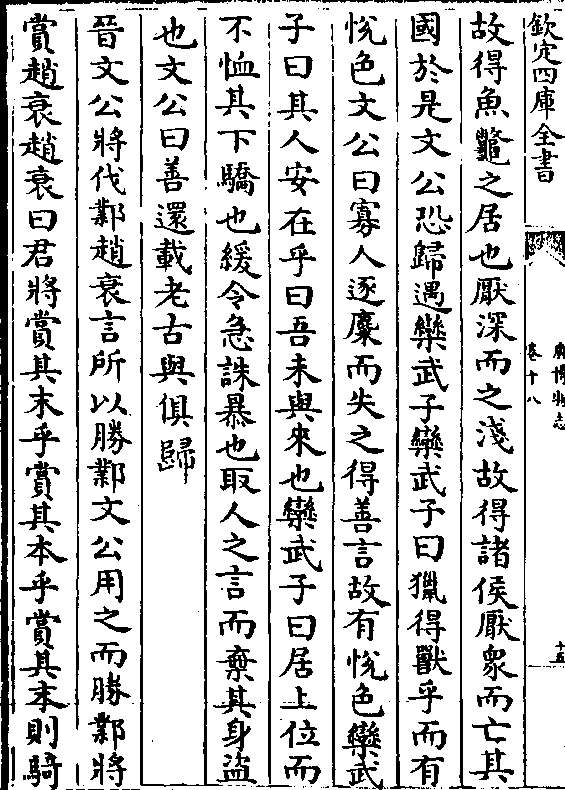 欽定四庫全書
廣博物志
卷十八
十五
故得魚鼈之居也厭深而之淺故得諸侯厭衆而亡其
國於是文公恐歸遇欒武子欒武子曰獵得獸乎而有
悅色文公曰寡人逐麋而失之得善言故有悅色欒武
子曰其人安在乎曰吾未與來也欒武子曰居上位而
不恤其下驕也緩令急誅暴也取人之言而棄其身盜
也文公曰善還載老古與俱歸
晉文公將伐鄴趙衰言所以勝鄴文公用之而勝鄴將
賞趙衰趙衰曰君將賞其末乎賞其本乎賞其末則騎